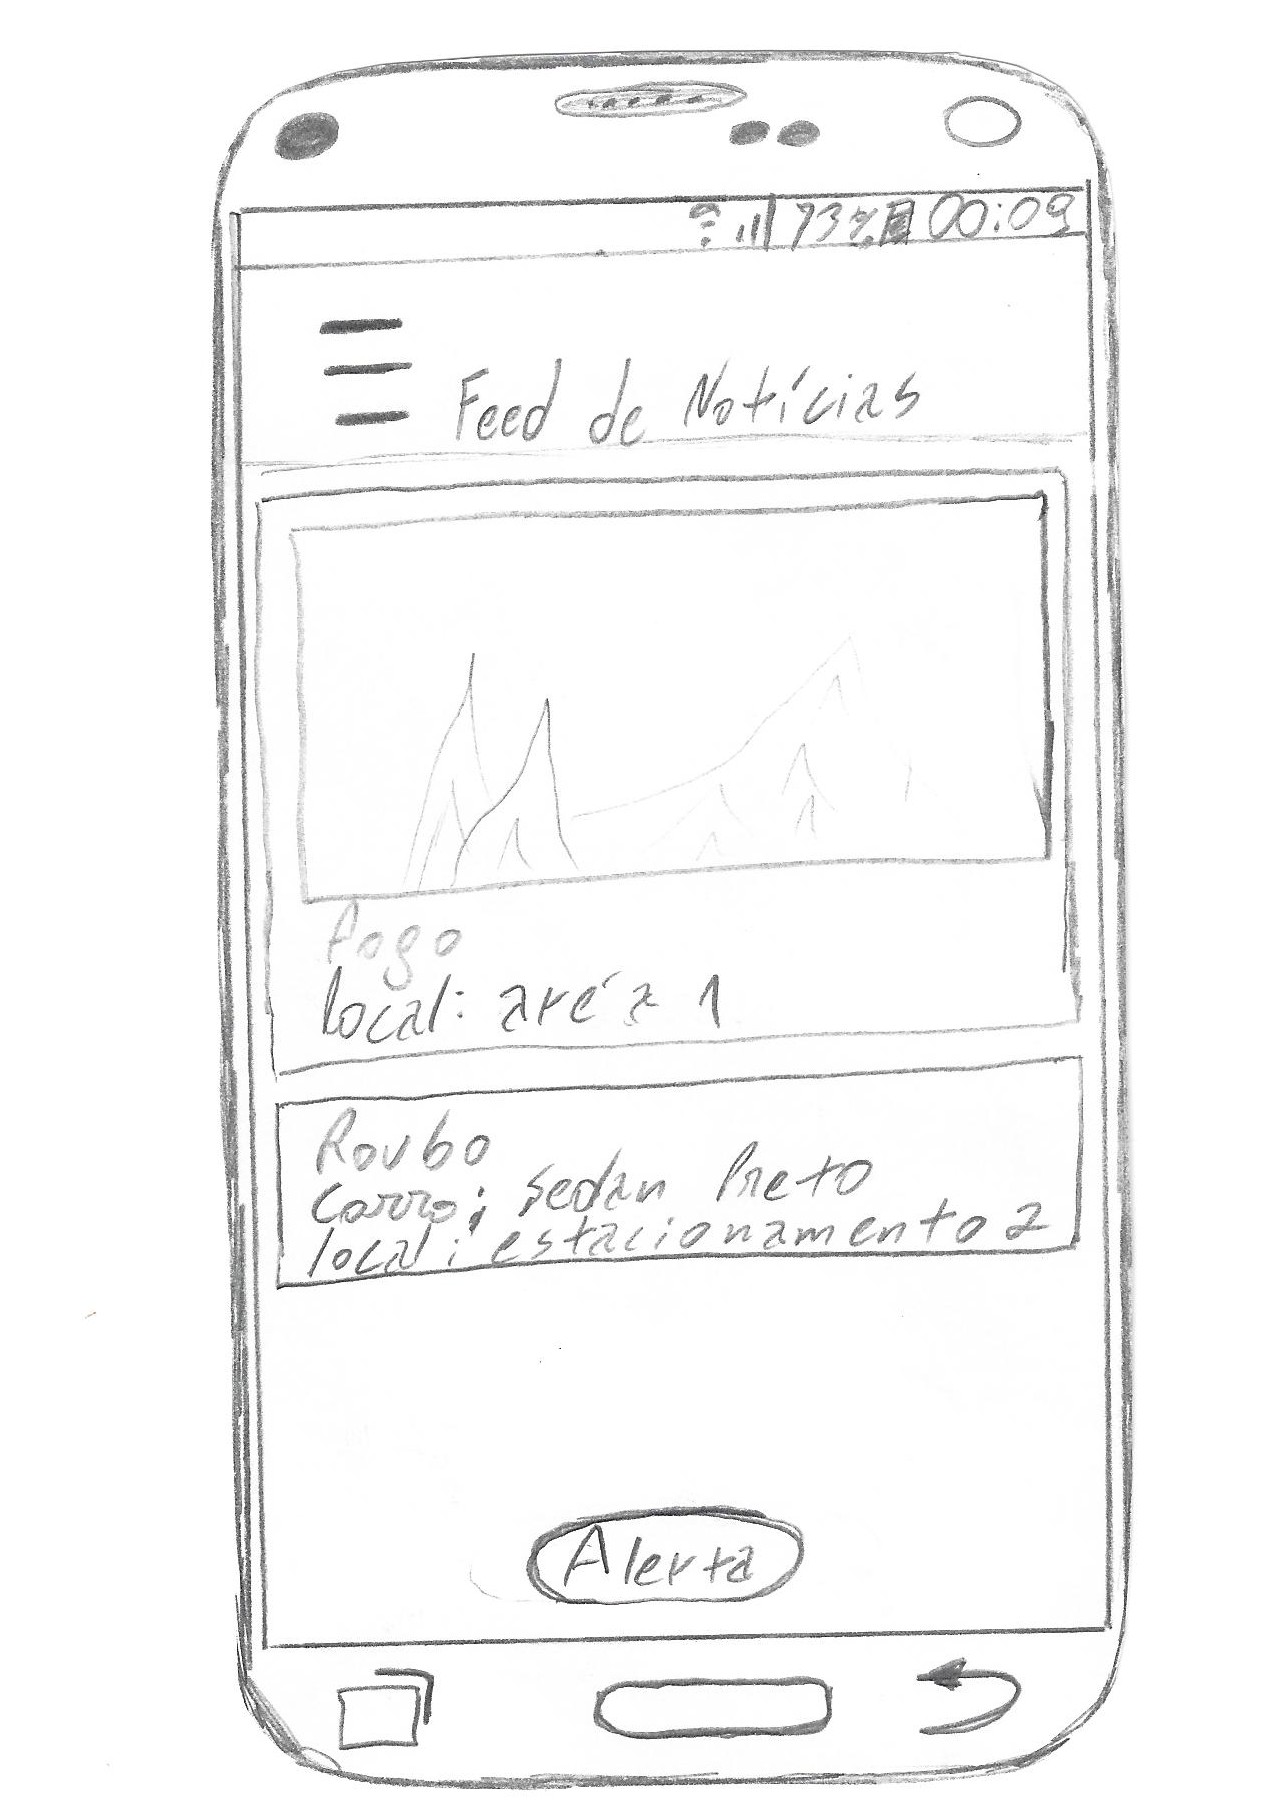 73% 00:09
Feed de Notícias
Fogo
local: aréa 1
Roubo
carro: sedan Preto
local: estacionamento 2
Alerta